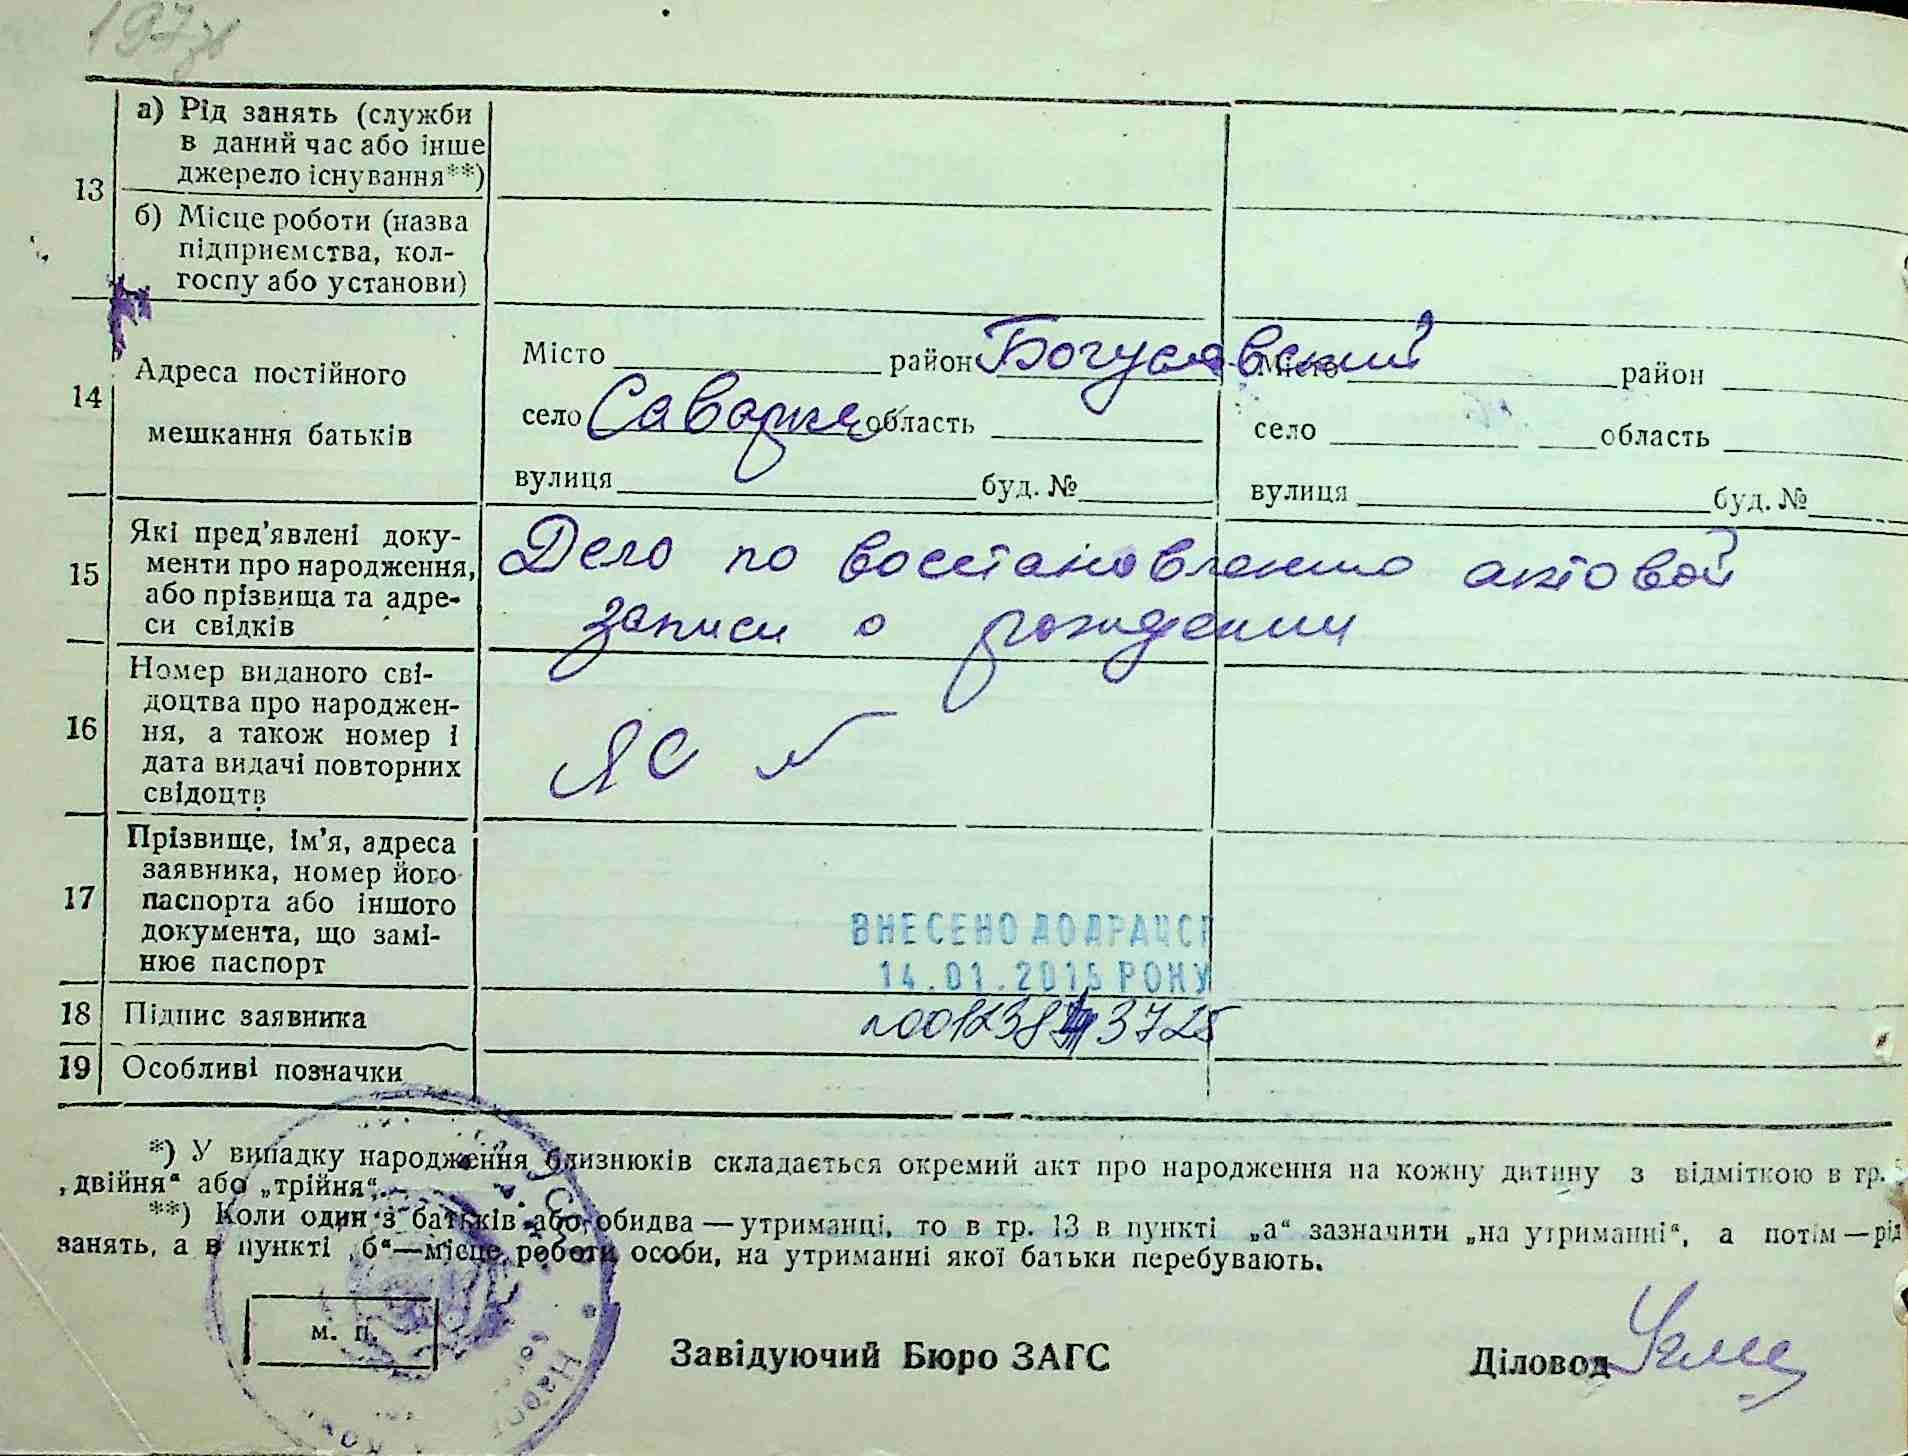 197зв
13
а) Рід занять (служби
в даний час або інше
джерело існування**)
б) Місце роботи (назва
підприємства, кол-
госпу або установи)
14
Адреса постійного
мешкання батьків
Місто район Богуславский
село Саварка область
вулиця буд. №
Місто район
село область
вулиця буд. №
15
Які пред’явлені доку-
менти про народження,
або прізвища та адре-
си свідків
Дело по восстановлению актовой
записи о рождении
16
Номер виданого сві-
доцтва про народжен-
ня, а також номер і
дата видачі повторних
свідоцтв
ЯС №
17
Прізвище, ім’я, адреса
заявника, номер його
паспорта або іншого
документа, що замі-
нює паспорт
ВНЕСЕНО ДО ДРАЦСГ
14.01.2015 РОКУ
18
Підпис заявника
3725
19
Особливі позначки
*) У випадку народження близнюків складається окремий акт про народження на кожну дитину з відміткою в гр.
„двійня“ або „трійня“.
**) Коли один з батьків або обидва — утриманці, то в гр. 13 в пункті „а“ зазначити „на утриманні“, а потім — рід
занять, а в пункті „б“ — місце роботи особи, на утриманні якої батьки перебувають.
м. п.
Завідуючий Бюро ЗАГС
Діловод